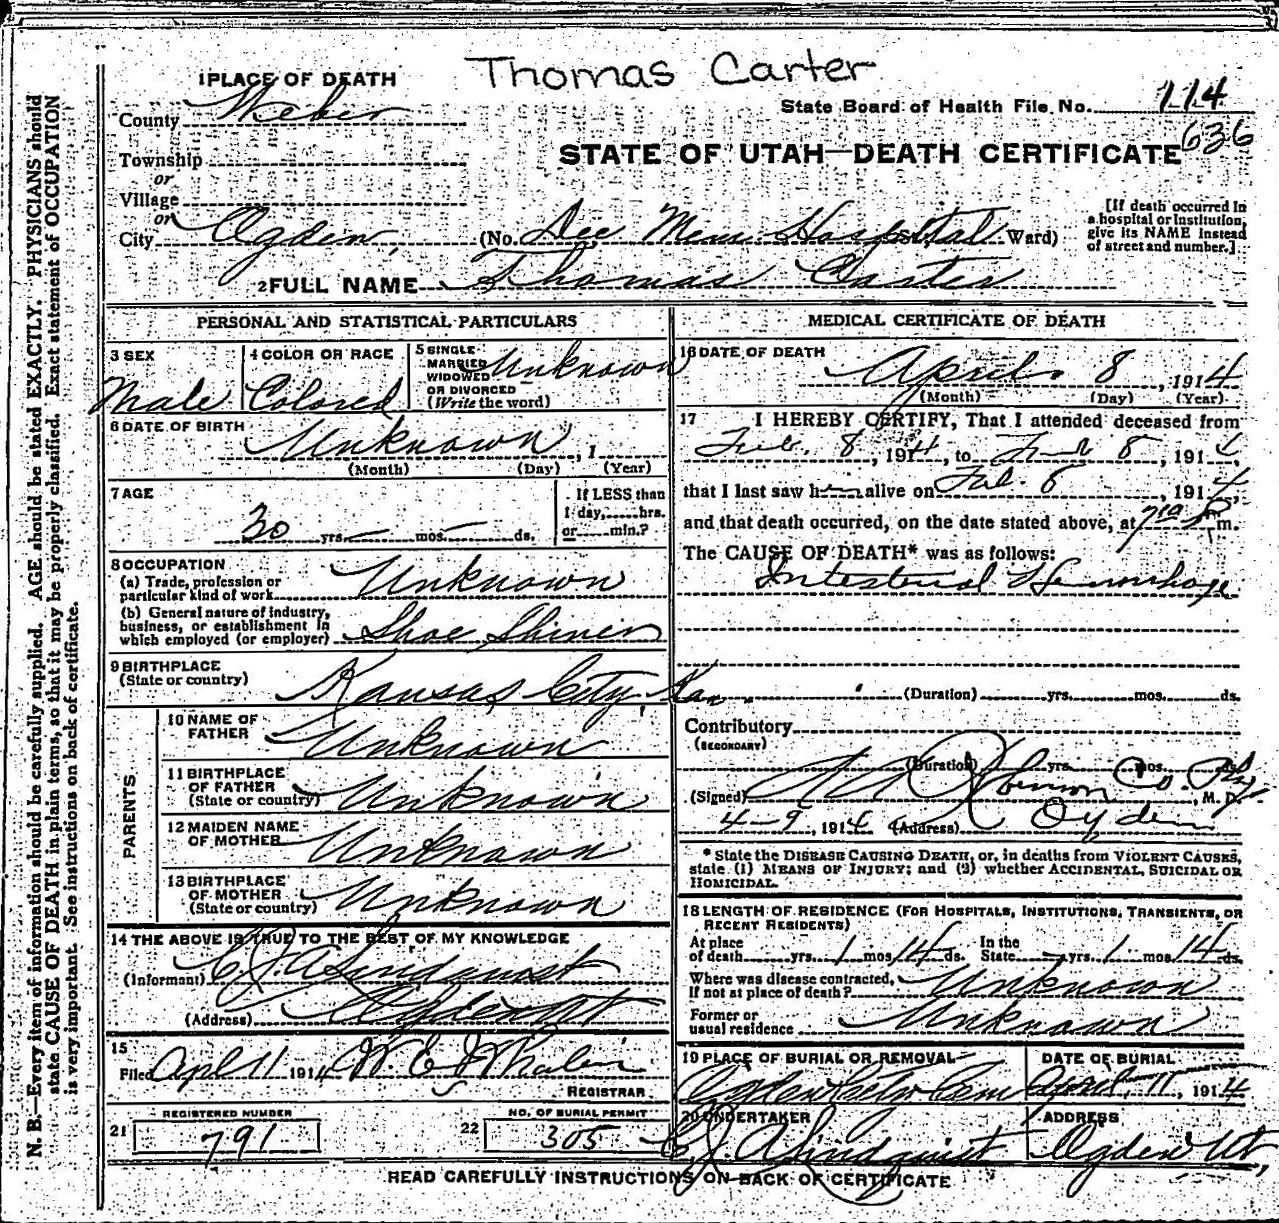 Thomas Carter
1 PLACE OF DEATH
County Weber
State Board of Health File No. 114
636
Township
or
Village
or
STATE OF UTAH—DEATH CERTIFICATE
City Ogden, (No. Dee Mem Hospital Ward)
[If death occurred in
a hospital or institution,
give its NAME instead
of street and number.]
2 FULL NAME Thomas Carter
PERSONAL AND STATISTICAL PARTICULARS
3 SEX
Male
4 COLOR OR RACE
Colored
5 SINGLE
MARRIED
WIDOWED
OR DIVORCED
(Write the word)
Unknown
6 DATE OF BIRTH
Unknown, 1
(Month) (Day) (Year)
7 AGE
30 yrs. mos. ds.
If LESS than
1 day, hrs.
or min.?
8 OCCUPATION
(a) Trade, profession or
particular kind of work Unknown
(b) General nature of industry,
business, or establishment in
which employed (or employer) Shoe Shiner
9 BIRTHPLACE
(State or country) Kansas City, Kan
PARENTS
10 NAME OF
FATHER Unknown
11 BIRTHPLACE
OF FATHER
(State or country) Unknown
12 MAIDEN NAME
OF MOTHER Unknown
13 BIRTHPLACE
OF MOTHER
(State or country) Unknown
14 THE ABOVE IS TRUE TO THE BEST OF MY KNOWLEDGE
(Informant) C. J. A. Lindquist
(Address) Ogden Ut
15
Filed Apl 11 1914 W. E. Whalen
REGISTRAR
REGISTERED NUMBER
21 791
NO. OF BURIAL PERMIT
22 305
MEDICAL CERTIFICATE OF DEATH
16 DATE OF DEATH
April 8, 1914
(Month) (Day) (Year)
17 I HEREBY CERTIFY, That I attended deceased from
8, 1914, to 8, 1914,
that I last saw h alive on , 1914,
and that death occurred, on the date stated above, at m.
The CAUSE OF DEATH* was as follows:
Intestinal Hemorrhage
(Duration) yrs. mos. ds.
Contributory
(SECONDARY)
(Duration) yrs. mos. ds.
(Signed) Robinson Co. Phy. , M. D.
4-9, 1914 (Address) Ogden
* State the DISEASE CAUSING DEATH, or, in deaths from VIOLENT CAUSES,
state (1) MEANS OF INJURY; and (2) whether ACCIDENTAL, SUICIDAL OR
HOMICIDAL.
18 LENGTH OF RESIDENCE (FOR HOSPITALS, INSTITUTIONS, TRANSIENTS, OR
RECENT RESIDENTS)
At place
of death yrs. 1 mos. 14 ds.
In the
State yrs. 1 mos. 14 ds.
Where was disease contracted,
if not at place of death? Unknown
Former or
usual residence Unknown
19 PLACE OF BURIAL OR REMOVAL
Ogden City Cem
DATE OF BURIAL
April 11, 1914
20 UNDERTAKER
C. J. A. Lindquist
ADDRESS
Ogden Ut,
READ CAREFULLY INSTRUCTIONS ON BACK OF CERTIFICATE
N. B. Every item of information should be carefully supplied. AGE should be stated EXACTLY. PHYSICIANS should
state CAUSE OF DEATH in plain terms, so that it may be properly classified. Exact statement of OCCUPATION
is very important. See instructions on back of certificate.